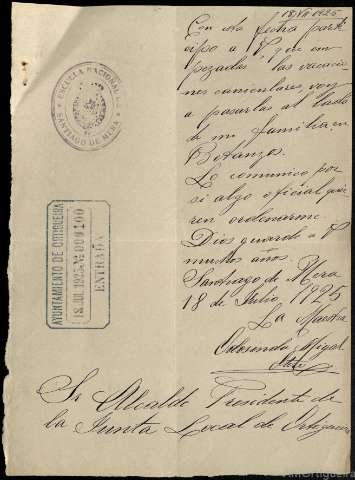 18 VII 1925
Con esta fecha part
icipo a V. que em
pezadas las vacacio
nes caniculares, voy
a pasarlas al lado
de mi familia en
Betanzos.
Lo comunico por
si algo oficial quie
ren ordenarme.
Dios guarde a V.
muchos años.
Santiago de Mera
18 de Julio 1925
La Maestra
ESCUELA NACIONAL DE
SANTIAGO DE MERA
AYUNTAMIENTO DE ORTIGUEIRA
18 JUL. 1925 Nº 000100
ENTRADA
Sr Alcalde Presidente de
la Junta Local de Ortigueira